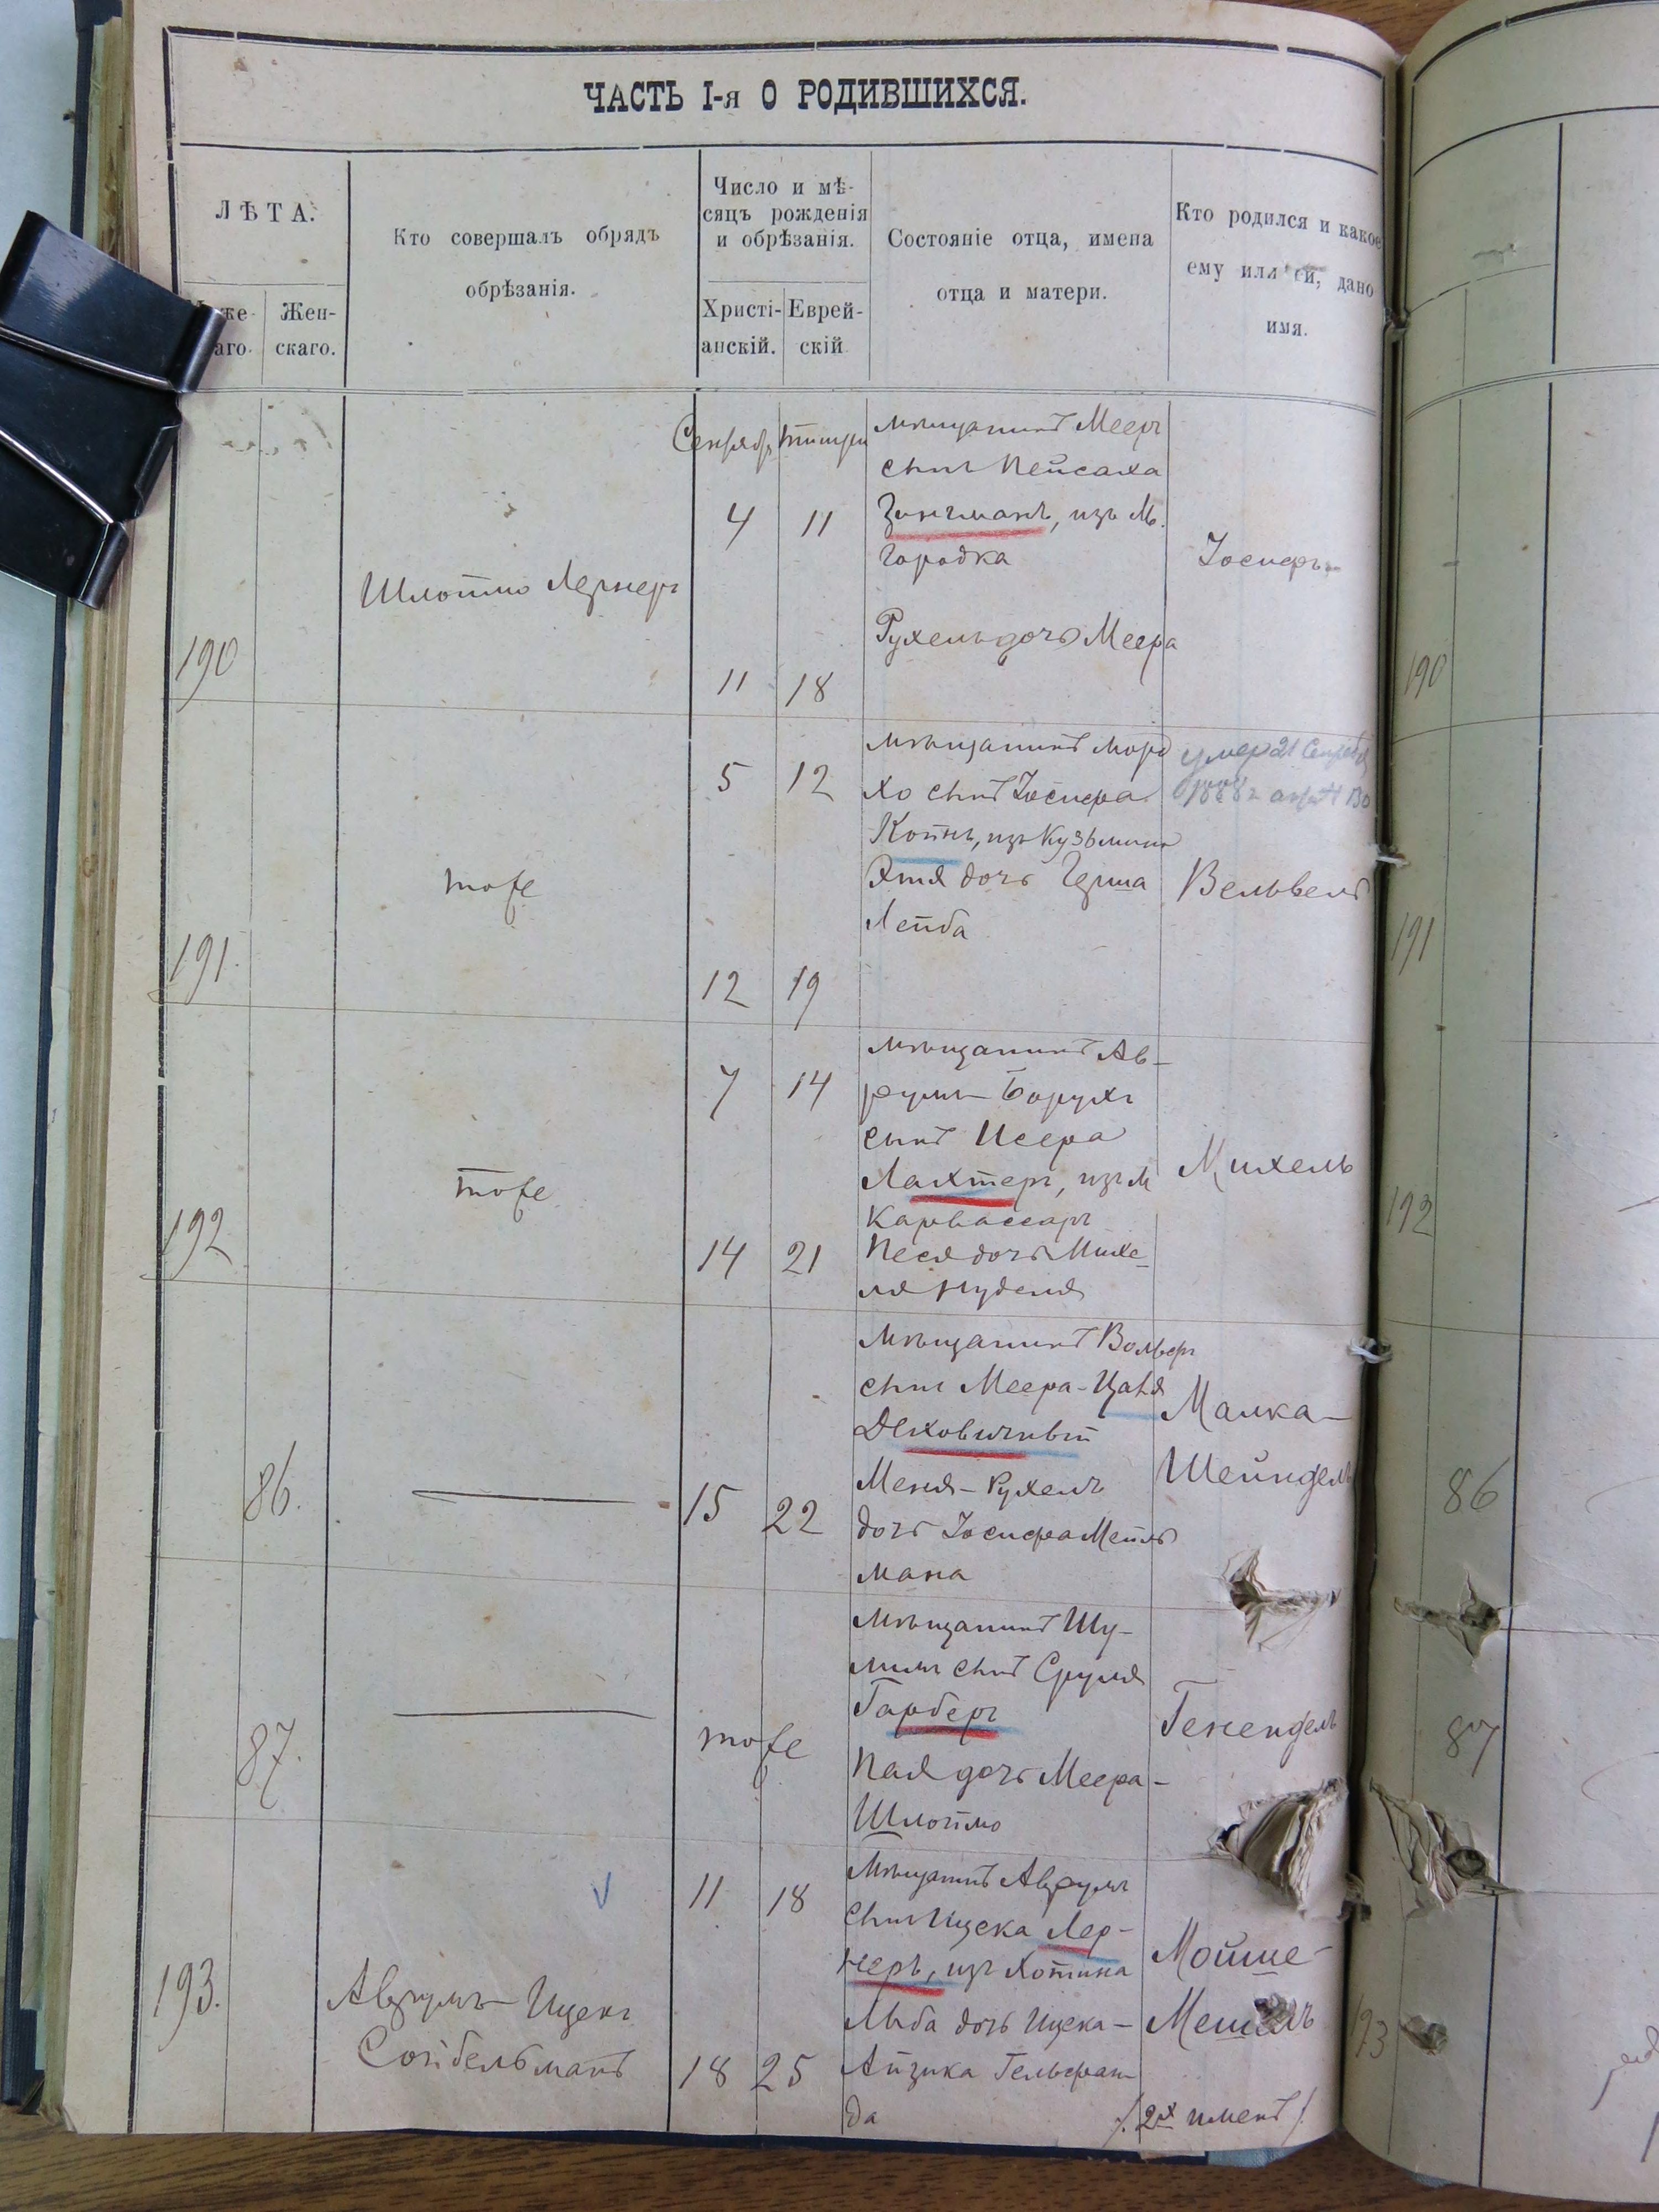 ЧАСТЬ I-я О РОДИВШИХСЯ.
ЛѢТА.
же-
аго.
Жен-
скаго.
Кто совершалъ обрядъ
обрѣзанія.
Число и мѣ-
сяцъ рожденія
и обрѣзанія.
Христі-
анскій.
Еврей-
скій
Состояніе отца, имена
отца и матери.
Кто родился и какое
ему или ей, дано
имя.
190
Шлоймо Лернеръ
Сентябр Тишри
4 11
11 18
мѣщанинъ Мееръ
сынъ Пейсаха
Зингманъ, изъ м.
Городка
Рухель дочь Меера
Іосифъ
190
191.
тоже
5 12
12 19
мѣщанинъ Морд
хо сынъ Іосифа
Койнъ, изъ Кузьмина
Этя дочь Герша
Лейба
умер 21 Сентября
1888 г.
Вельвелъ
191
192
тоже
7 14
14 21
мѣщанинъ Ав-
румъ-Борухъ
сынъ Исера
Лахтеръ, изъ м
Карвассаръ
Песя дочь Михе-
ля Нуделя
Михель
192
86.
15 22
мѣщанинъ Вольфъ
сынъ Меера-
Деховичный
Меня-Рухель
дочь Іосифа
мана
Малка-
Шейндель
86
87.
тоже
мѣщанинъ Шу-
лимъ сынъ Сруля
Гарберъ
Пая дочь Меера-
Шлоймо
Генендель
87
193.
Аврумъ-Ицекъ
Сойбельманъ
11 18
18 25
мѣщанинъ Аврумъ
сынъ Ицека Лер-
неръ, изъ Хотина
Лыба дочь Ицека-
Айзика Гельфан-
да
Мойше-
/2х именъ/
193